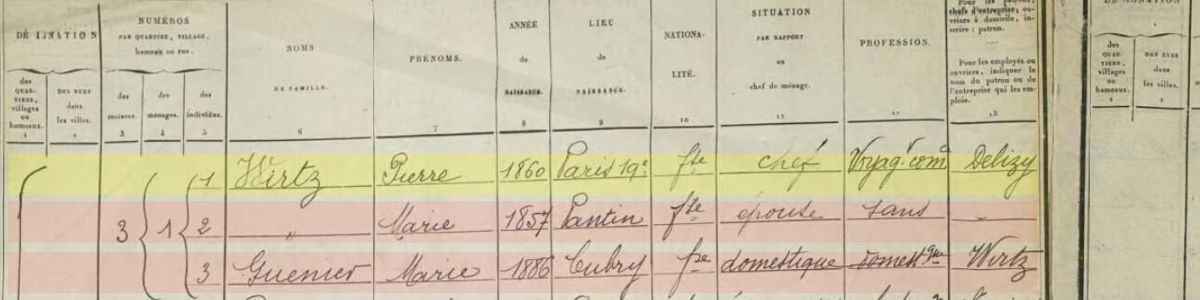 DÉSIGNATION
NUMÉROS
PAR QUARTIER, VILLAGE,
hameau ou rue.
des
QUAR-
TIERS,
villages
ou
hameaux.
1
DES RUES
dans
les villes.
2
des
maisons.
3
des
ménages.
4
des
individus.
5
NOMS
DE FAMILLE.
6
PRÉNOMS.
7
ANNÉE
de
NAISSANCE.
8
LIEU
de
NAISSANCE.
9
NATIONA-
LITÉ.
10
SITUATION
PAR RAPPORT
au
chef de ménage.
11
PROFESSION.
12
chefs d'entreprise, ou-
vriers à domicile, in-
scrire : patron.
Pour les employés ou
ouvriers, indiquer le
nom du patron ou de
l'entreprise qui les em-
ploie.
13
des
QUAR-
TIERS,
villages
ou
hameaux.
1
DES RUES
dans
les villes.
2
1 Wirtz Pierre 1860 Paris 19e fse chef Voyagr com Delizy
3 1 2 " Marie 1857 Pantin fse épouse sans -
3 Guenier Marie 1886 Cubry fse domestique domestque Wirtz